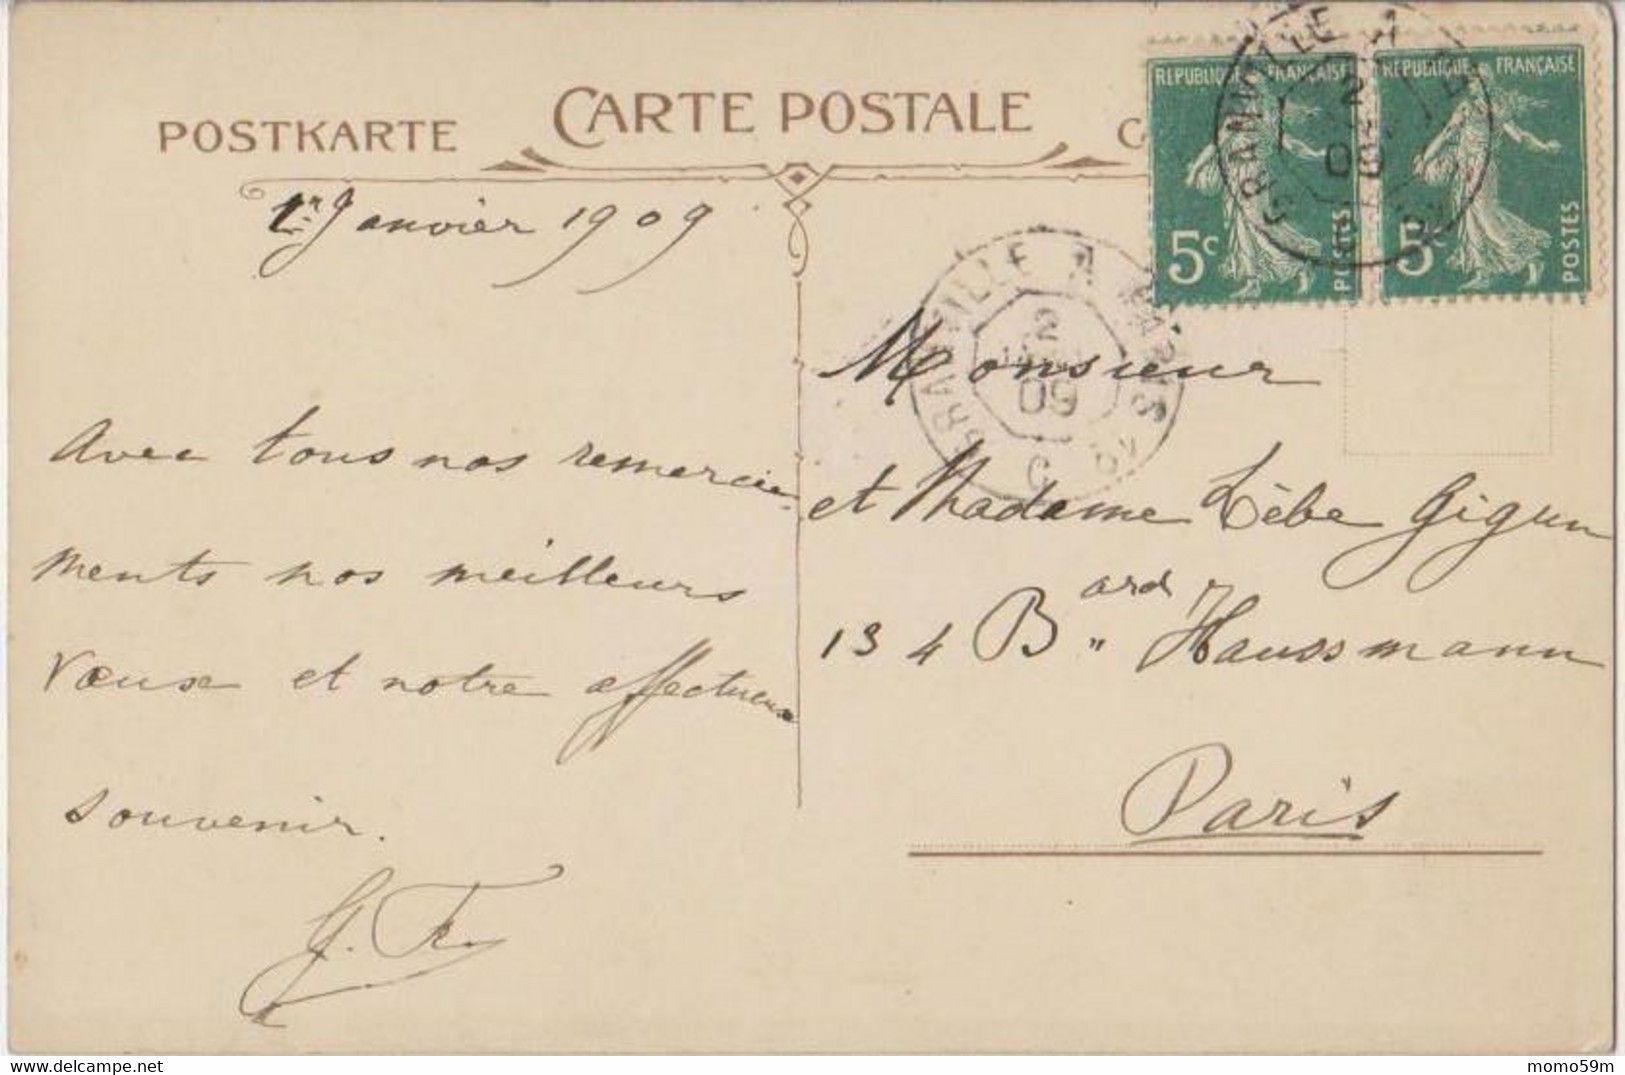 POSTKARTE
CARTE POSTALE
C
RÉPUBLIQUE FRANÇAISE
5c
POSTES
RÉPUBLIQUE FRANÇAISE
5c
POSTES
GRANVILLE A PARIS
2
09
GRANVILLE A PARIS
2
09
C
1er Janvier 1909
Avec tous nos remercie-
ments nos meilleurs
vœux et notre affectueux
souvenir.
Monsieur
et Madame Lèbe Gigun
134 B"ard Haussmann
Paris
momo59m